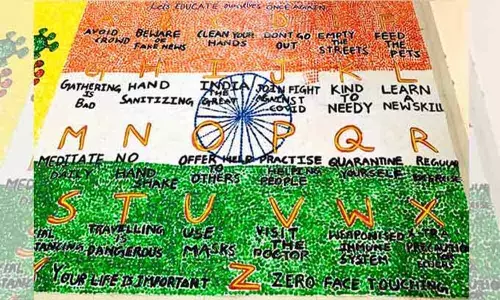 LETS EDUCATE OURSELVES ONCE AGAIN
AVOID CROWD
BEWARE OF FAKE NEWS
CLEAN YOUR HANDS
DONT GO OUT
EMPTY THE STREETS
FEED THE PETS
G H I J K L
GATHERING IS BAD
HAND SANITIZING
INDIA THE GREAT
JOIN FIGHT AGAINST COVID
KIND TO NEEDY
LEARN NEW SKILL
M N O P Q R
MEDITATE DAILY
NO HAND SHAKE
OFFER HELP TO OTHERS
PRACTISE HELPING PEOPLE
QUARANTINE YOURSELF
REGULAR EXERCISE
S T U V W X
TRAVELLING IS DANGEROUS
USE MASKS
VISIT THE DOCTOR
WEAPONISED IMMUNE SYSTEM
YOUR LIFE IS IMPORTANT
Z ZERO FACE TOUCHING